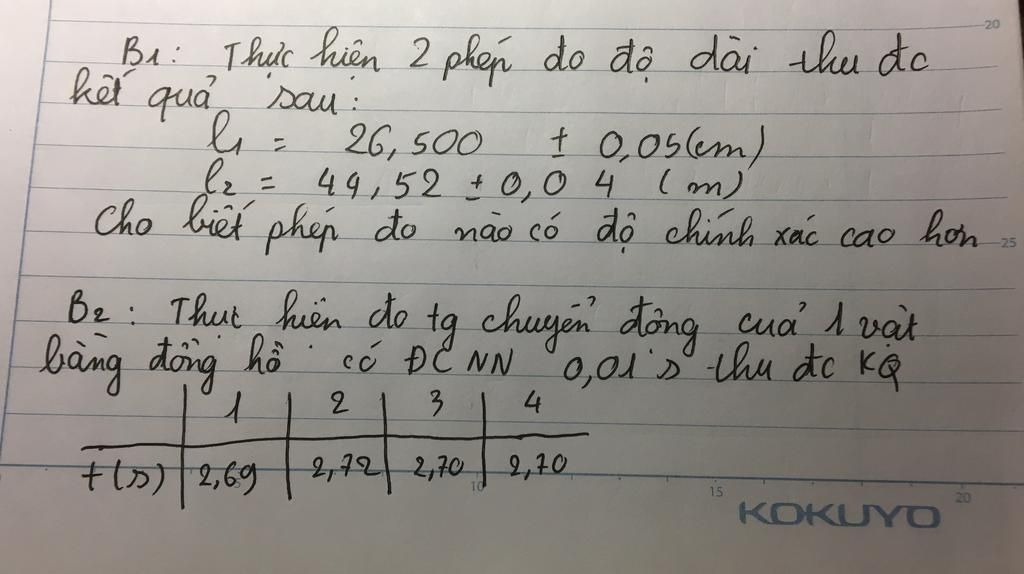 20
B1: Thực hiện 2 phép đo độ dài thu đc
kết quả sau:
l1 = 26,500 ± 0,05(cm)
l2 = 44,52 ± 0,04 (m)
Cho biết phép đo nào có độ chính xác cao hơn
25
B2: Thưc hiện đo tg chuyển đông cuả 1 vật
bằng đồng hồ có ĐCNN 0,01 s thu đc KQ
1 2 3 4
t(s) 2,69 2,72 2,70 2,70
10 15 20
KOKUYO